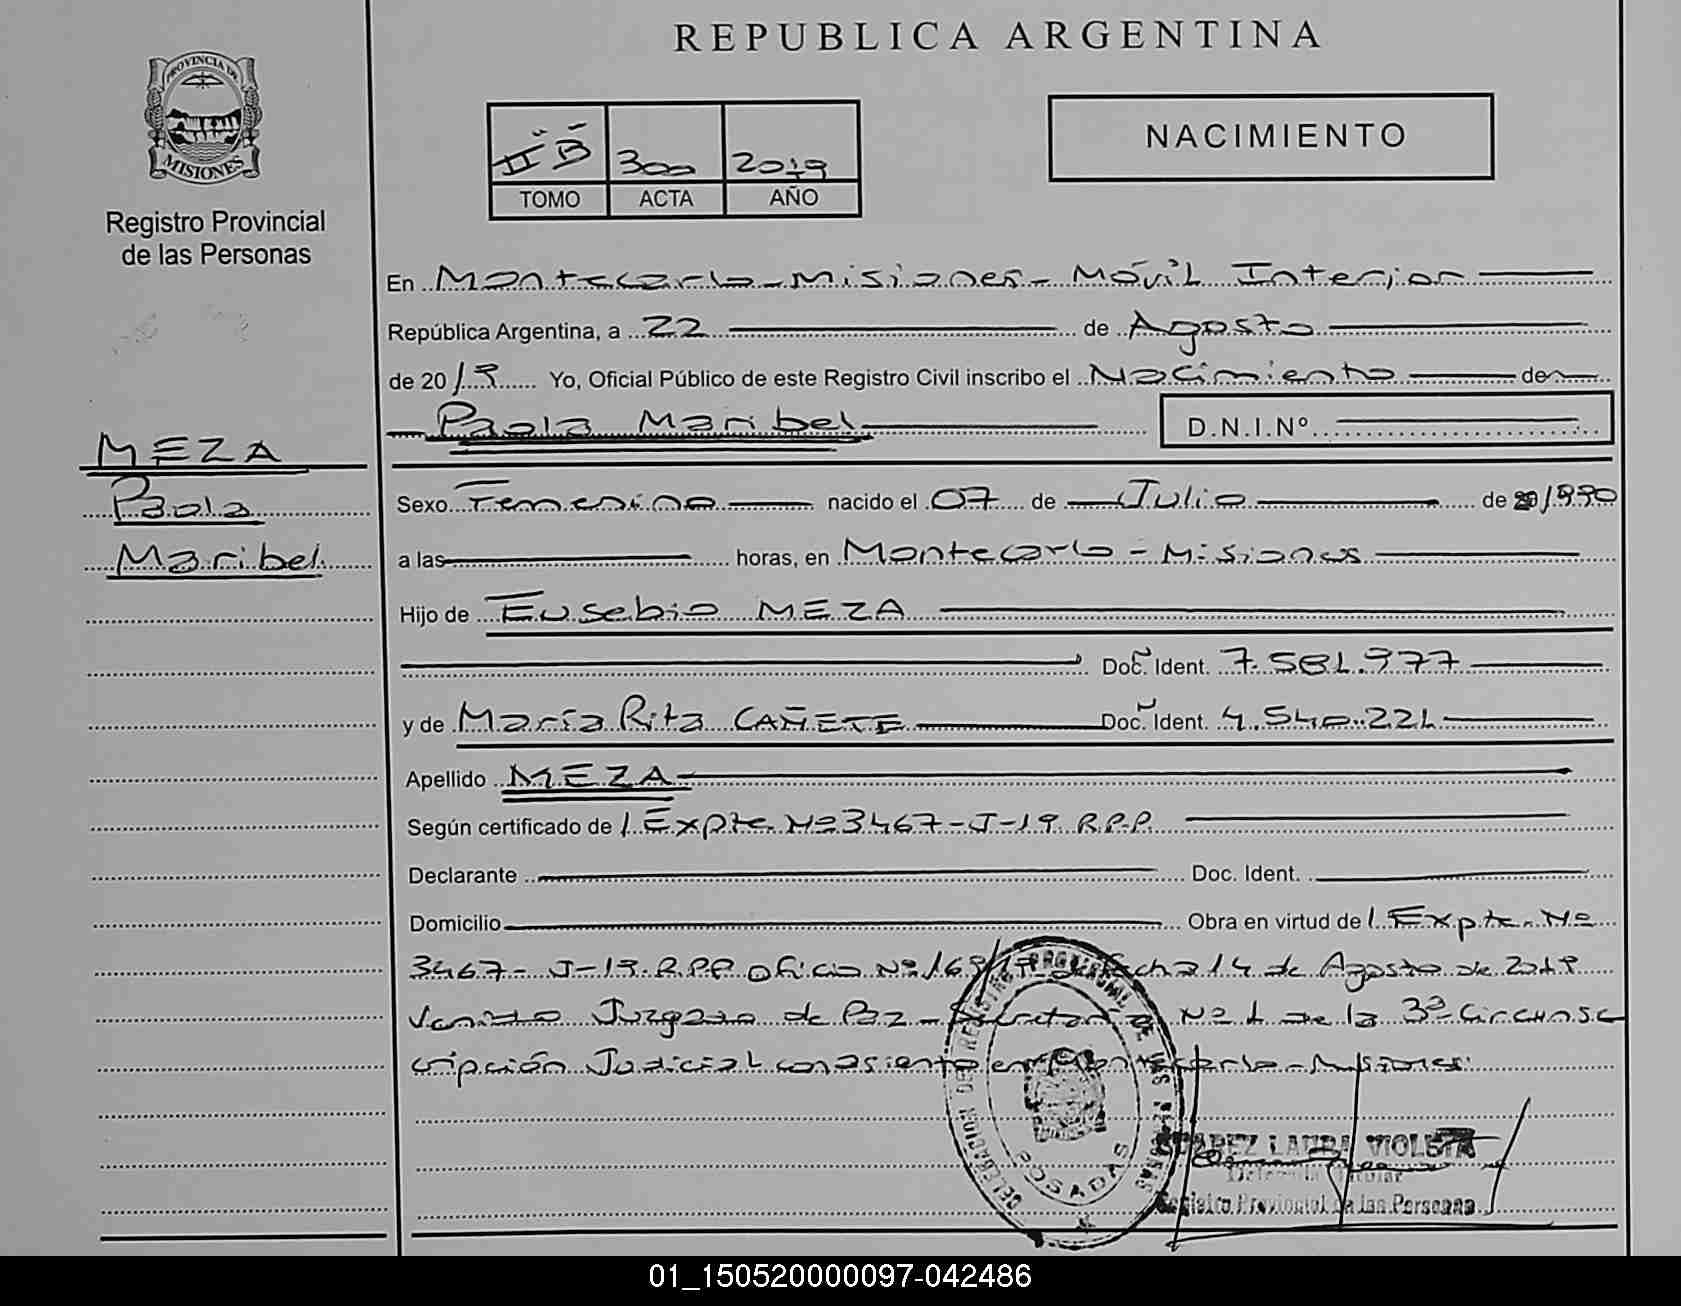 REPUBLICA ARGENTINA
PROVINCIA DE
MISIONES
Registro Provincial
de las Personas
II B 300 2019
TOMO ACTA AÑO
NACIMIENTO
En Montecarlo - Misiones - Móvil Interior
República Argentina, a 22 de Agosto
de 2019 Yo, Oficial Público de este Registro Civil inscribo el Nacimiento de
Paola Maribel D.N.I.Nº
MEZA
Paola
Maribel
Sexo Femenino nacido el 07 de Julio de 1990
a las horas, en Montecarlo - Misiones
Hijo de Eusebio MEZA
Doc. Ident. 7.581.977
y de María Rita CAÑETE Doc. Ident. 4.540.221
Apellido MEZA
Según certificado de I. Expte. Nº 3467-J-19 R.P.P.
Declarante Doc. Ident.
Domicilio Obra en virtud de I. Expte. Nº
3467-J-19 R.P.P. Oficio Nº fecha 14 de Agosto de 2019
Juzgado de Paz - Nº 1 de la 3º Circunsc
ripción Judicial con asiento en Montecarlo - Misiones
DELEGACION DEL REGISTRO PROVINCIAL DE LAS PERSONAS
POSADAS
SUAREZ LAURA VIOLETA
Registro Provincial de las Personas
01_150520000097-042486